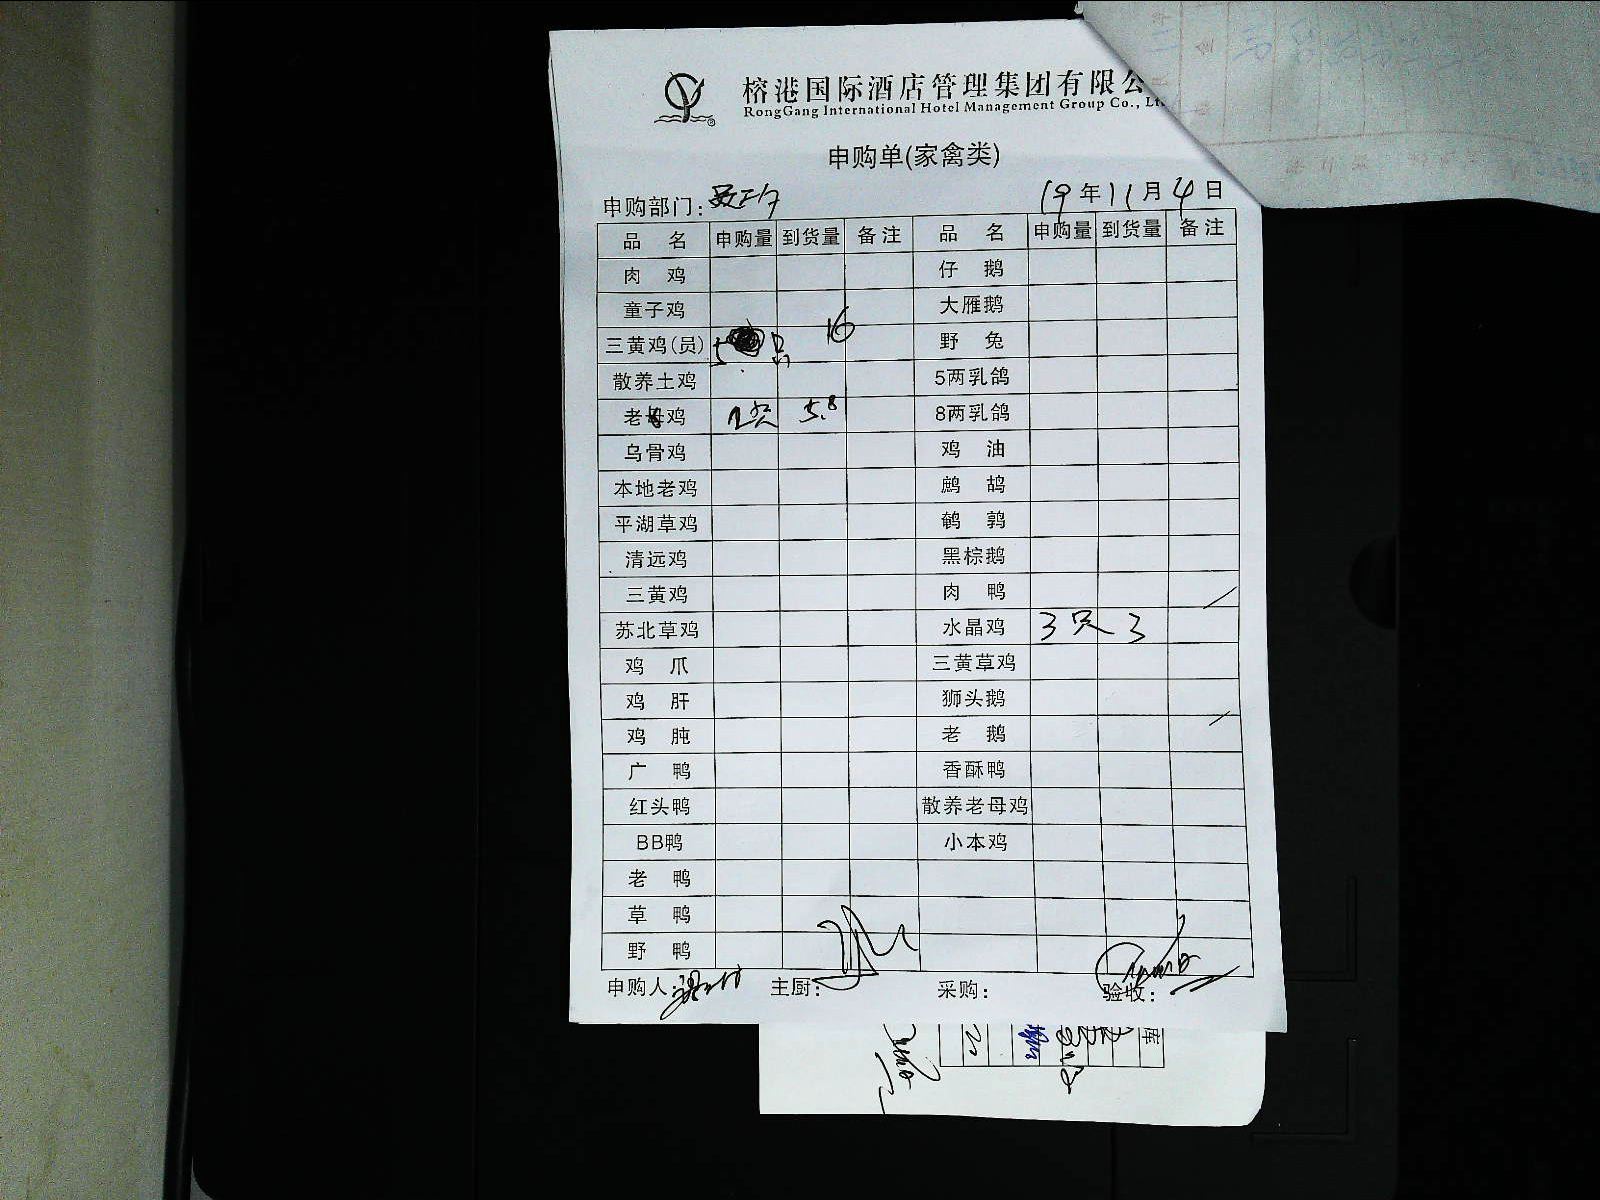 榕港国际酒店管理集团有限公
RongGang International Hotel Management Group Co., Lt
申购单(家禽类)
申购部门: 19年11月4日
品 名 申购量 到货量 备注 品 名 申购量 到货量 备注
肉 鸡 仔 鹅
童子鸡 大雁鹅
三黄鸡(员) 5 只 16 野 兔
散养土鸡 5两乳鸽
老母鸡 2只 5.8 8两乳鸽
乌骨鸡 鸡 油
本地老鸡 鹧 鸪
平湖草鸡 鹌 鹑
清远鸡 黑棕鹅
三黄鸡 肉 鸭
苏北草鸡 水晶鸡 3只 3
鸡 爪 三黄草鸡
鸡 肝 狮头鹅
鸡 肫 老 鹅
广 鸭 香酥鸭
红头鸭 散养老母鸡
BB鸭 小本鸡
老 鸭
草 鸭
野 鸭
申购人: 主厨: 采购: 验收:
库